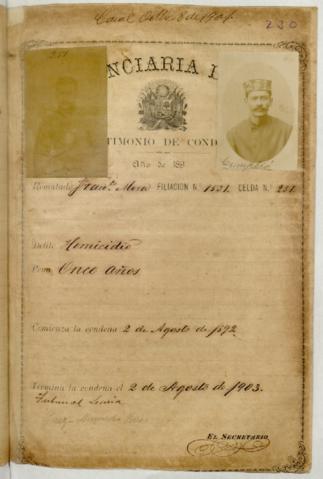 230
251
NCIARIA
TIMONIO DE COND
Año de 189
Cumplió
Rematado Franco Mora FILIACION N.° 1531. CELDA N.° 251
Delito Homicidio
Pena Once años
Comienza la condena 2 de Agosto de 1892.
Termina la condena el 2 de Agosto de 1903.
Tribunal
EL SECRETARIO